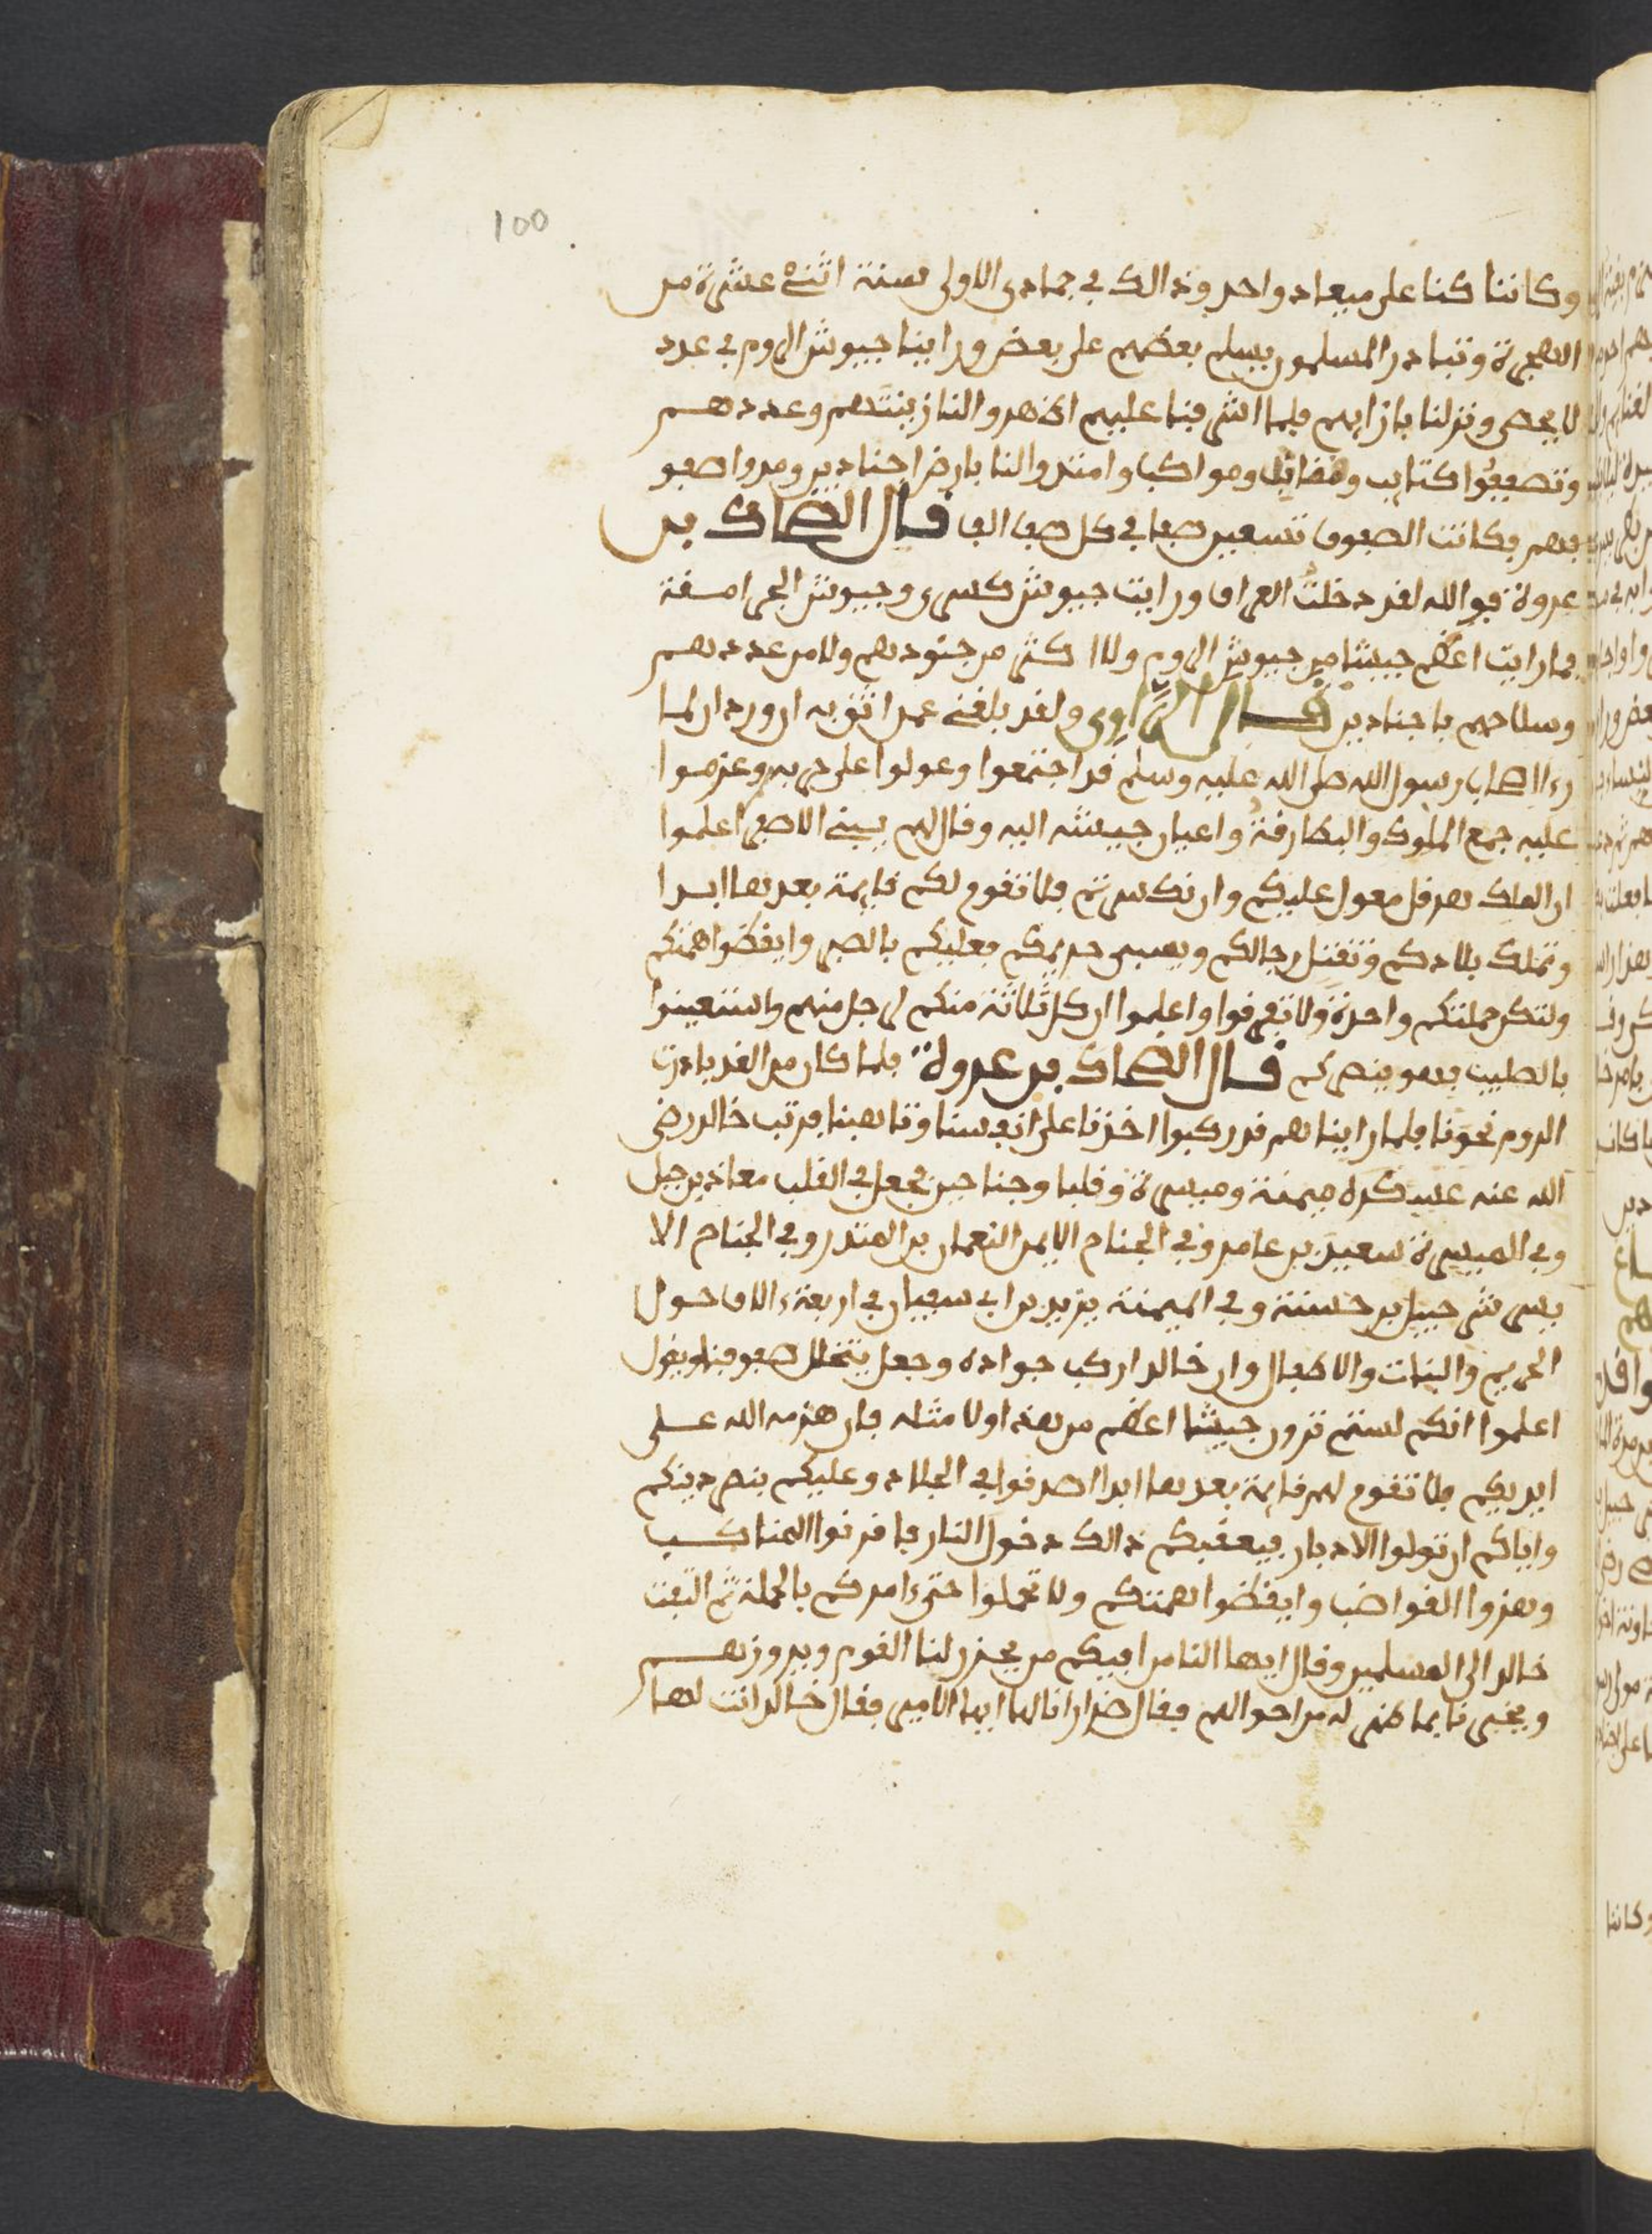 100
وكاننا كنا على ميعاد واحد وذالك في جمادى الاولى سنة اثنى عشرة من
الهجرة وتبادر المسلمون يسلم بعضهم على بعض وراينا جيوش الروم في عدد
لا يحصى ونزلنا بازايهم فلما اشرفنا عليهم اظهروا لنا زينتهم وعددهم
وتصففوا كتايب ومواكب وامتدوا لنا بارض اجنادين ومدوا صفو
فهم فكانت الصفوف تسعين صفا في كل صف الف قال الضحاك بن
عروة فوالله لقد دخلت العراق ورايت جيوش كسرى وجيوش الجرامقة
فما رايت اعظم جيشا من جيوش الروم ولا اكثر من جنودهم ولا من عددهم
وسلاحهم باجنادين قال الراوي ولقد بلغني عمن اثق به ان وردان لما
رءا اصحاب رسول الله صلى الله عليه وسلم قد اجتمعوا وعولوا على حربه وعزموا
عليه جمع الملوك والبطارقة واعيان جيشه اليه وقال لهم يبني الاصفر اعلموا
ان الملك هرقل معول عليكم وان نكسرتم فلا تقوم لكم قايمة بعدها ابدا
وتملك بلادكم وتقتل رجالكم ويسبى حريمكم فعليكم بالصبر وايقظوا همتكم
ولتكن حملتكم واحدة ولا تفرقوا واعلموا ان كل ثلاثة منكم لرجل منهم واستعينوا
بالصليب فهو ينصركم قال الضحاك بن عروة فلما كان من الغد بادرت
الروم نحونا فلما رايناهم قد ركبوا اخذنا على انفسنا وتاهبنا فرتب خالد رضي
الله عنه عسكره ميمنة وميسرة وقلبا وجناحين فجعل في القلب معاذ بن جبل
وفي الميسرة سعيد بن عامر وفي الجناح الايمن النعمان بن المنذر وفي الجناح الا
يسر شرحبيل بن حسنة وفي الميمنة يزيد بن ابي سفيان في اربعة ءالاف حول
الحريم والبنات والاطفال وان خالدا ركب جواده وجعل يتخلل صفوفنا ويقول
اعلموا انكم لستم ترون جيشا اعظم من هذا ولا مثله فان هزمه الله على
ايديكم فلا تقوم لهم قايمة بعدها ابدا اصدقوا في الجلاد وعليكم بنصر دينكم
واياكم ان تولوا الادبار فيعقبكم ذالك دخول النار فاقرنوا المناكب
وهزوا القواضب وايقظوا همتكم ولا تحملوا حتى ءامركم بالحملة ثم التفت
خالد الى المسلمين وقال ايها الناس افيكم من يحزر لنا القوم ويروزهم
ويخبرنا بما ظهر له من احوالهم فقال ضرار انا لها ايها الامير فقال خالد انت لها